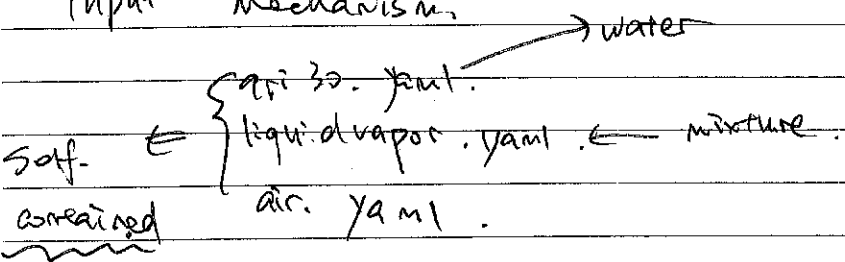 Input Mechanism.
water
gri30.yaml.
liquidvapor.yaml. ← mixture.
Self-
contained
air.yaml.